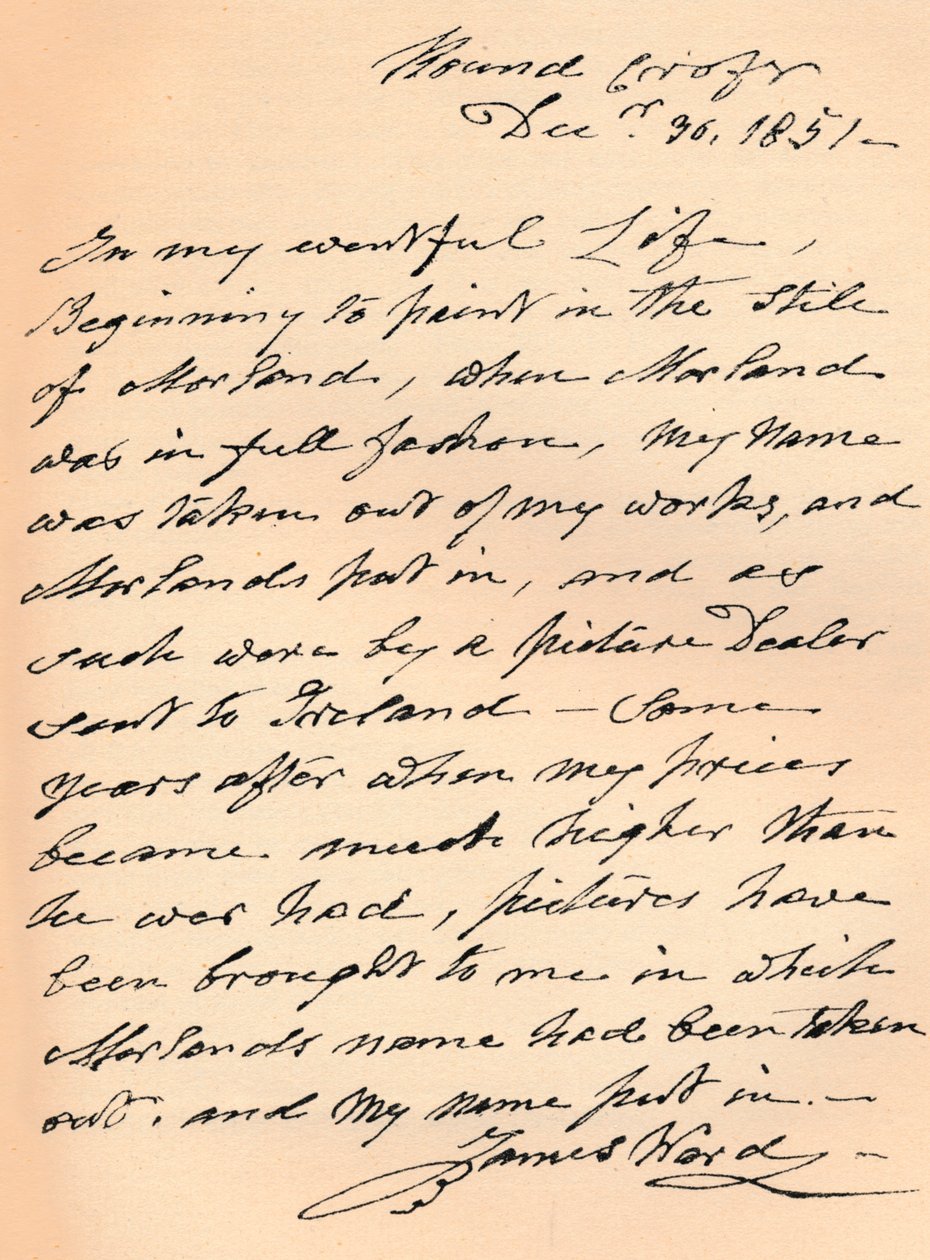 Round Croft
Decr. 30, 1851 —
In my eventful Life,
Beginning to paint in the Stile
of Morland, when Morland
was in full fashon, my name
was taken out of my works, and
Morlands put in, and as
such were by a picture Dealer
sent to Ireland — Some
years after when my prices
became much higher than
he ever had, pictures have
been brought to me in which
Morlands name had been taken
out. and my name put in. —
James Ward —